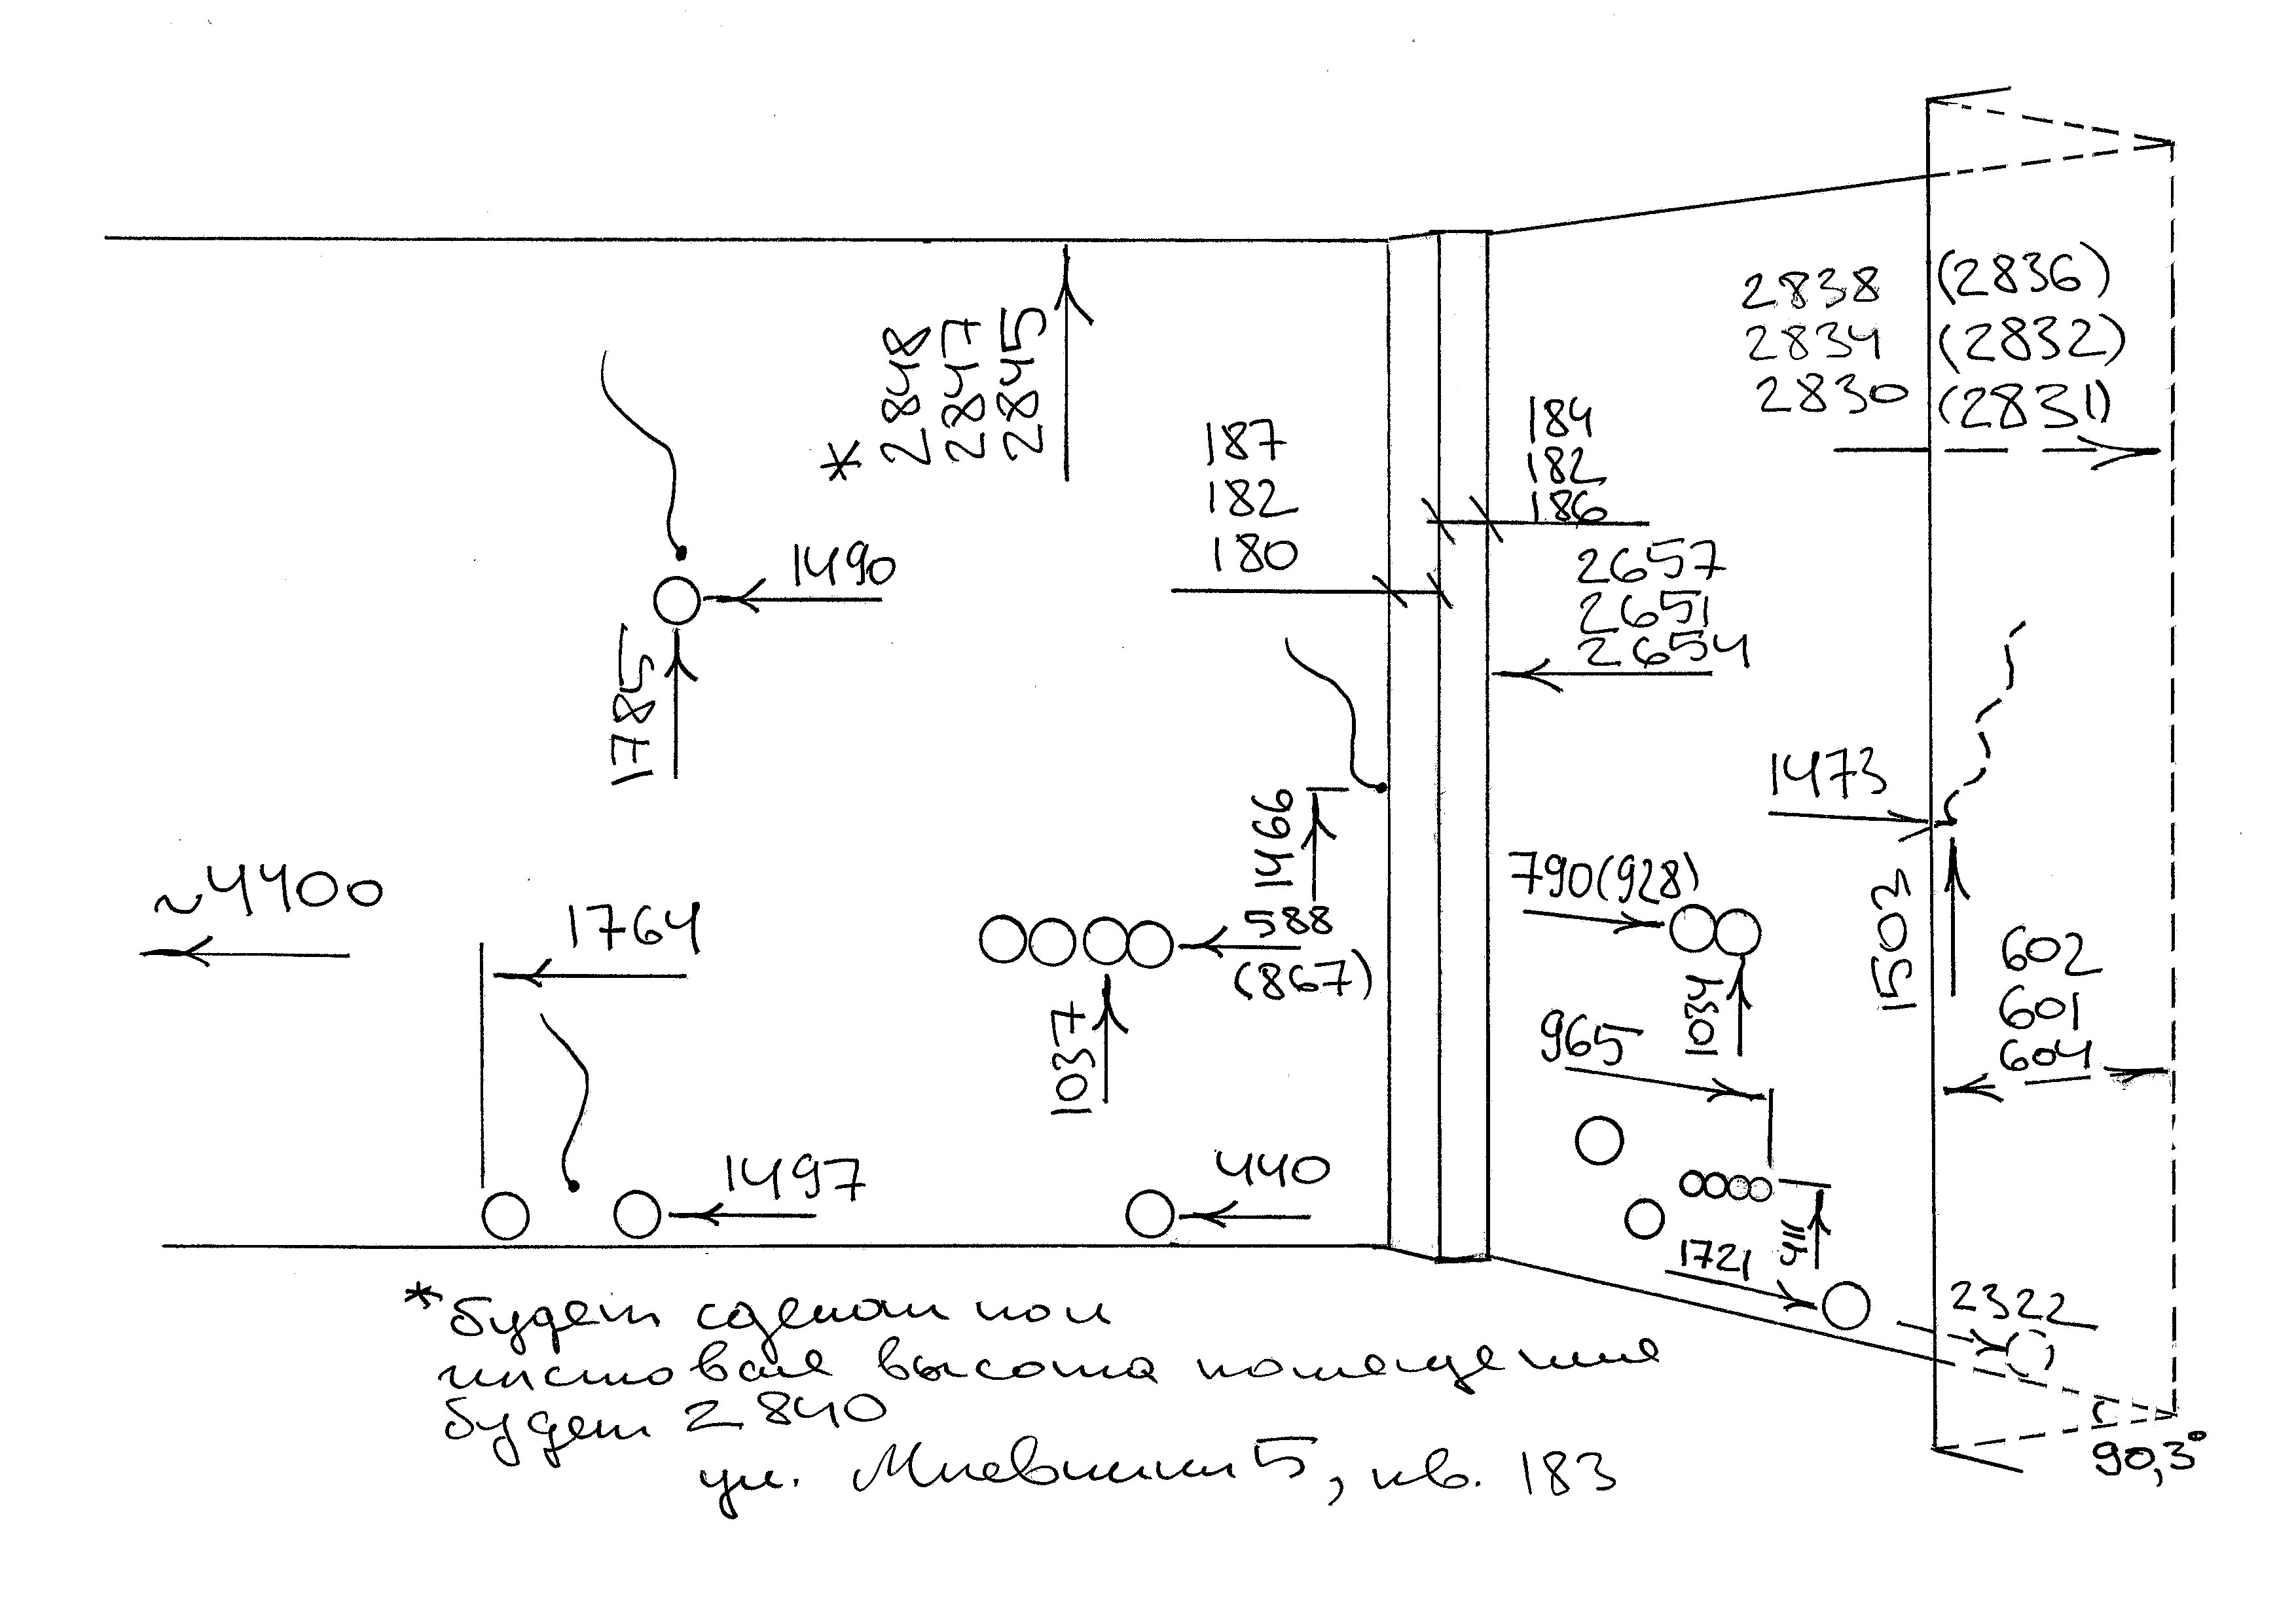 2838 (2836)
2834 (2832)
2830 (2831)
*
2848
2847
2845
187
182
180
184
182
186
2657
2651
2654
1490
1785
1473
1466
~4400
1764
588
(867)
790(928)
1503
602
601
604
1037
1034
965
1497
440
411
1721
2322
*будет сделан пол
чистовая высота помещения
будет 2840
90,3°
ул. Мневники 5, кв. 183